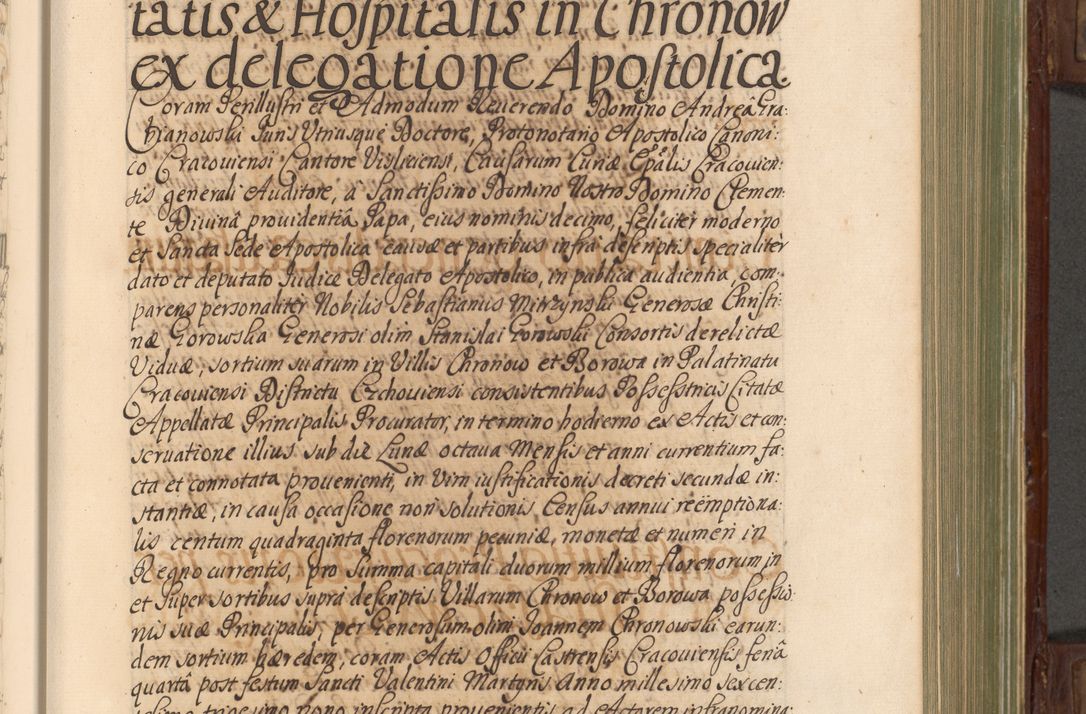 tatis & Hospitalis in Chronow
ex delegatione Apostolica.
Coram Perillustri et Admodum Reverendo Domino Andreâ Gra-
bianowski Juris Utriusque Doctore, Protonotario Apostolico Canoni-
co Cracoviensi Cantore Visliciensi, Causarum Curiæ Epalis Cracovien:
sis generali Auditore, a Sanctissimo Domino Nostro Domino Clemen-
te Divinâ providentiâ Papa, eius nominis decimo, feliciter moderno
et Sancta Sede Apostolica causæ et partibus infra descriptis specialiter
dato et deputato Iudice Delegato Apostolico, in publica audientia, com-
parens personaliter Nobilis Sebastianus Mirzynski Generosæ Christi:
næ Gorowska Generosi olim Stanislai Gorowski Consortis derelictæ
Viduæ, sortium suarum in Villis Chronow et Borowa in Palatinatu
Cracoviensi Districtu Czchoviensi consistentibus Possessatricis Citatæ
Appellatæ Principalis Procurator, in termino hodierno ex Actis et con-
servatione illius sub die Lunæ octava Mensis et anni currentium fa-
cta et connotata provenienti, in vim iustificationis decreti secundæ in:
stantiæ, in causa occasione non solutionis Census annui reëmptiona:
lis centum quadraginta florenorum pecuniæ, monetæ et numeri in
Regno currentis, pro Summa capitali duorum millium florenorum in
et super sortibus supra descriptis Villarum Chronow et Borowa possessio:
nis suæ Principalis, per Generosum olim Joannem Chronowski earun:
dem sortium hæredem, coram Actis Officii Castrensis Cracoviensis feriâ
quartâ post festum Sancti Valentini Martyris Anno millesimo sexcen-
tesimo trigesimo nono inscripta provenientis ad Actorem infranomina: